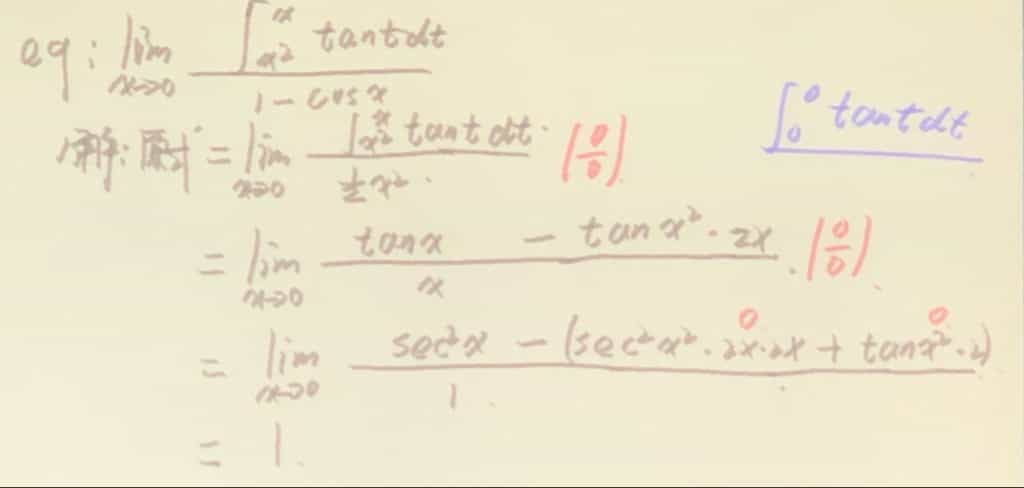 eg: lim_{x→0} \frac{∫_{x²}^{x} tant dt}{1 - cosx}
解: 原式 = lim_{x→0} \frac{∫_{x²}^{x} tant dt}{½x²} (0/0)
∫_0^0 tant dt
= lim_{x→0} \frac{tanx - tanx²·2x}{x} (0/0)
= lim_{x→0} \frac{sec²x - (sec²x²·2x·2x + tanx²·2)}{1} 0 0
= 1.